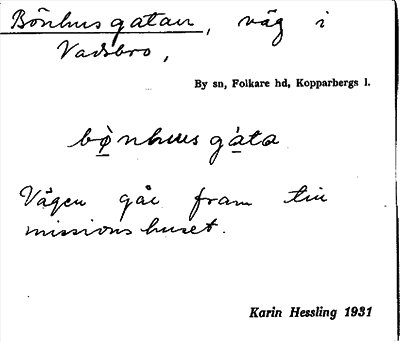 Bönhusgatan, väg i
Vadsbro,
By sn, Folkare hd, Kopparbergs l.
bø̀nhusgàta
Vägen går fram till
missionshuset.
Karin Hessling 1931